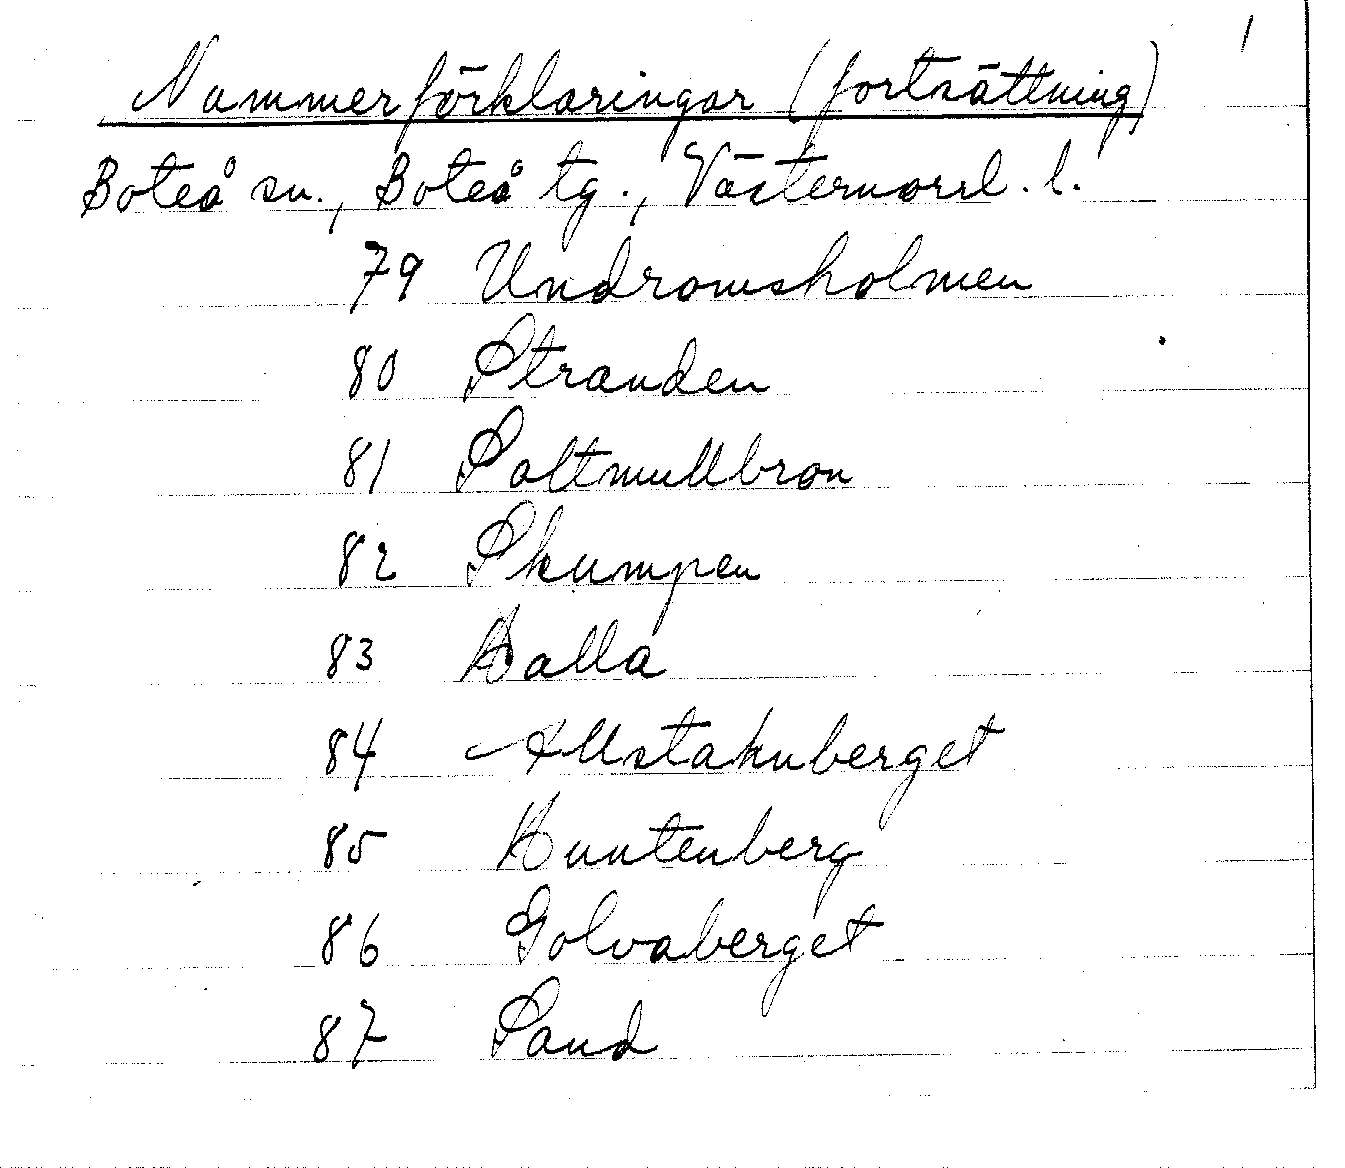 1
Nummerförklaringar (fortsättning)
Boteå sn., Boteå tg., Västernorrl. l.
79 Undromsholmen
80 Stranden
81 Saltmullbron
82 Skumpen
83 Balla
84 Allstakuberget
85 Buntenberg
86 Golvaberget
87 Sand